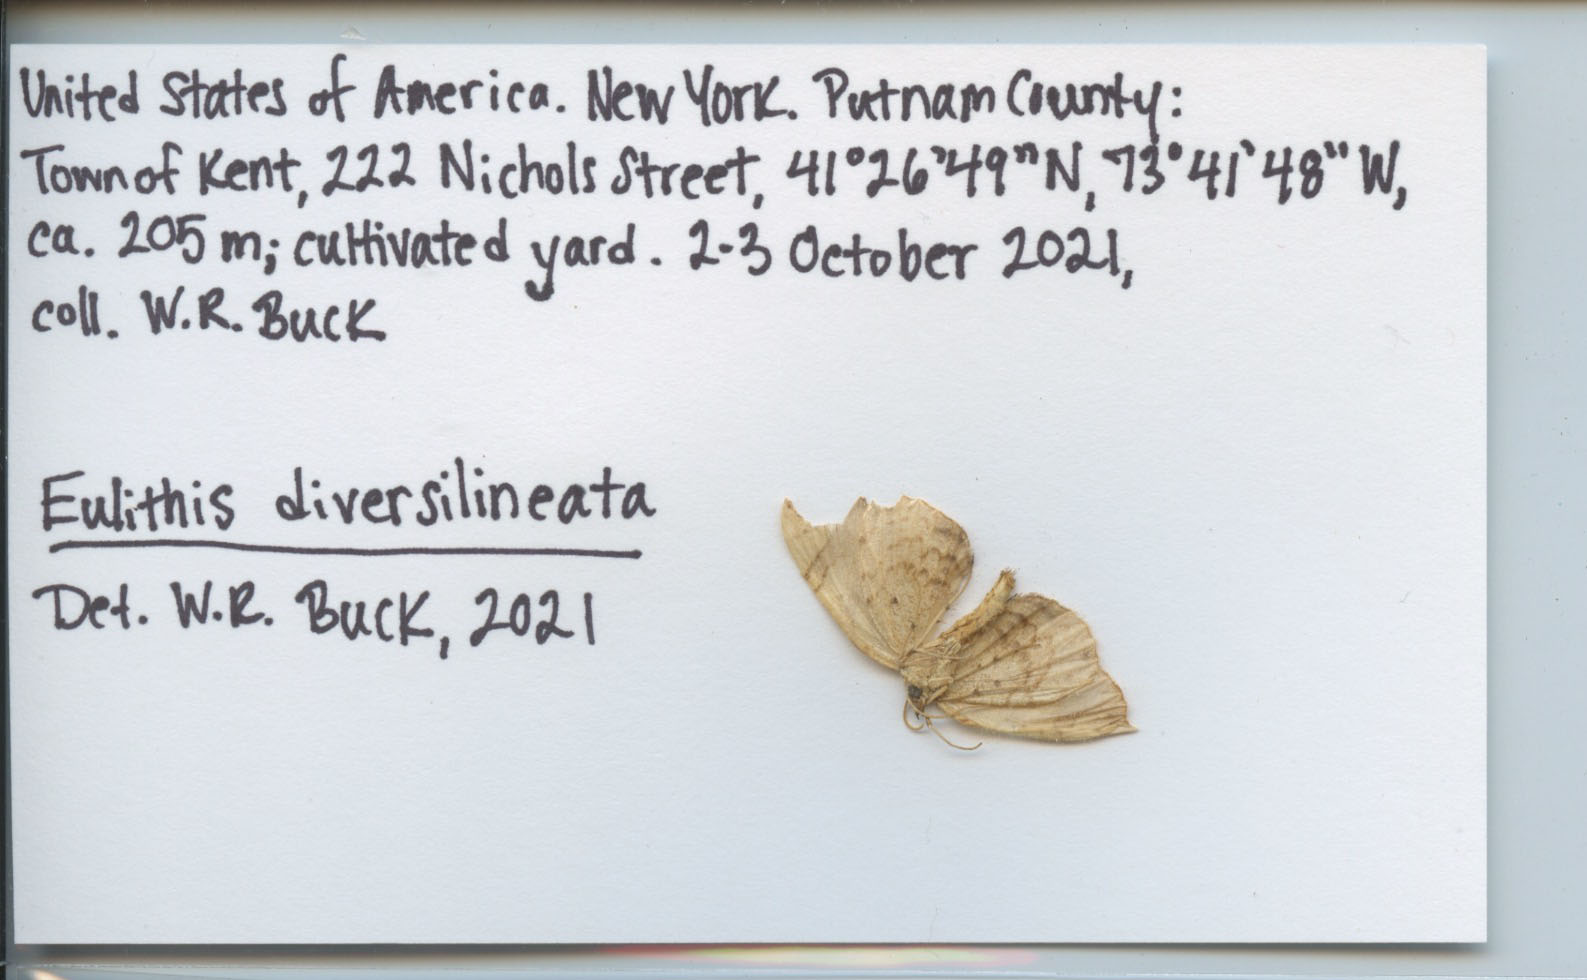 United States of America. New York. Putnam County:
Town of Kent, 222 Nichols Street, 41°26'49"N, 73°41'48"W,
ca. 205 m; cultivated yard. 2-3 October 2021,
coll. W.R. Buck
Eulithis diversilineata
Det. W.R. Buck, 2021